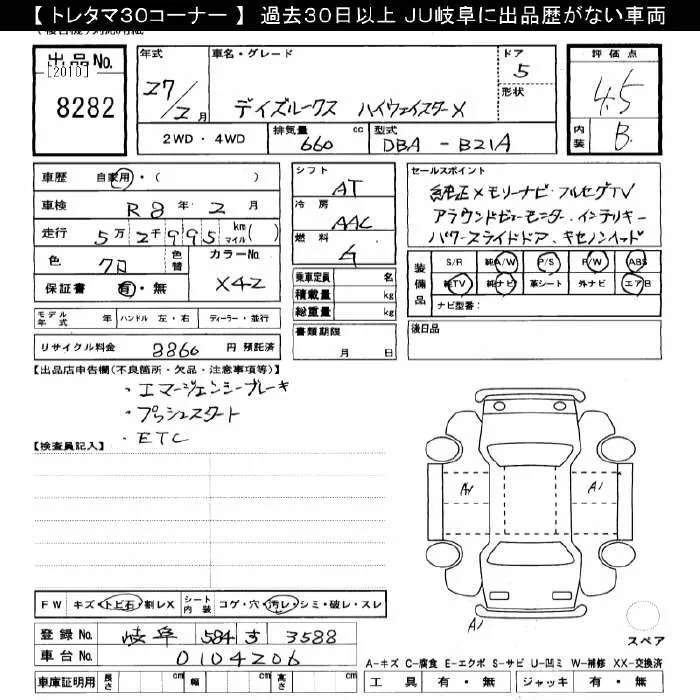 【 トレタマ30コーナー 】 過去30日以上 JU岐阜に出品歴がない車両
出品No.
[2010]
8282
年式
27/2月
車名・グレード
デイズルークス ハイウェイスターX
ドア
5
形状
評価点
4.5
内装
B
2WD・4WD
排気量
660
cc
型式
DBA - B21A
車歴
自家用・( )
車検
R8年2月
走行
5万2千995
km
マイル
( )
色
色替
カラーNo.
X42
保証書
有・無
モデル年式
年
ハンドル
左・右
ディーラー・並行
リサイクル料金
8860
円 預託済
シフト
AT
冷房
AAC
燃料
ガ
乗車定員
名
積載量
kg
総重量
kg
書類期限
月 日
セールスポイント
純正メモリーナビ・フルセグTV
アラウンドビューモニター・インテリキー
パワースライドドア、キセノンヘッド
装備品
S/R
純A/W
P/S
P/W
ABS
純TV
純ナビ
革シート
外ナビ
エアB
ナビ型番:
後日品
【出品店申告欄(不良箇所・欠品・注意事項等)】
・エマージェンシーブレーキ
・プッシュスタート
・ETC
【検査員記入】
A1
A1
A1
スペア
FW
キズ・トビ石・割レX
シート内装
コゲ・穴・汚レ・シミ・破レ・スレ
登録No.
岐阜 584 す 3588
車台No.
0104206
車庫証明用
長さ
cm
幅
cm
高さ
cm
A-キズ C-腐食 E-エクボ S-サビ U-凹ミ W-補修 XX-交換済
工具
有・無
ジャッキ
有・無